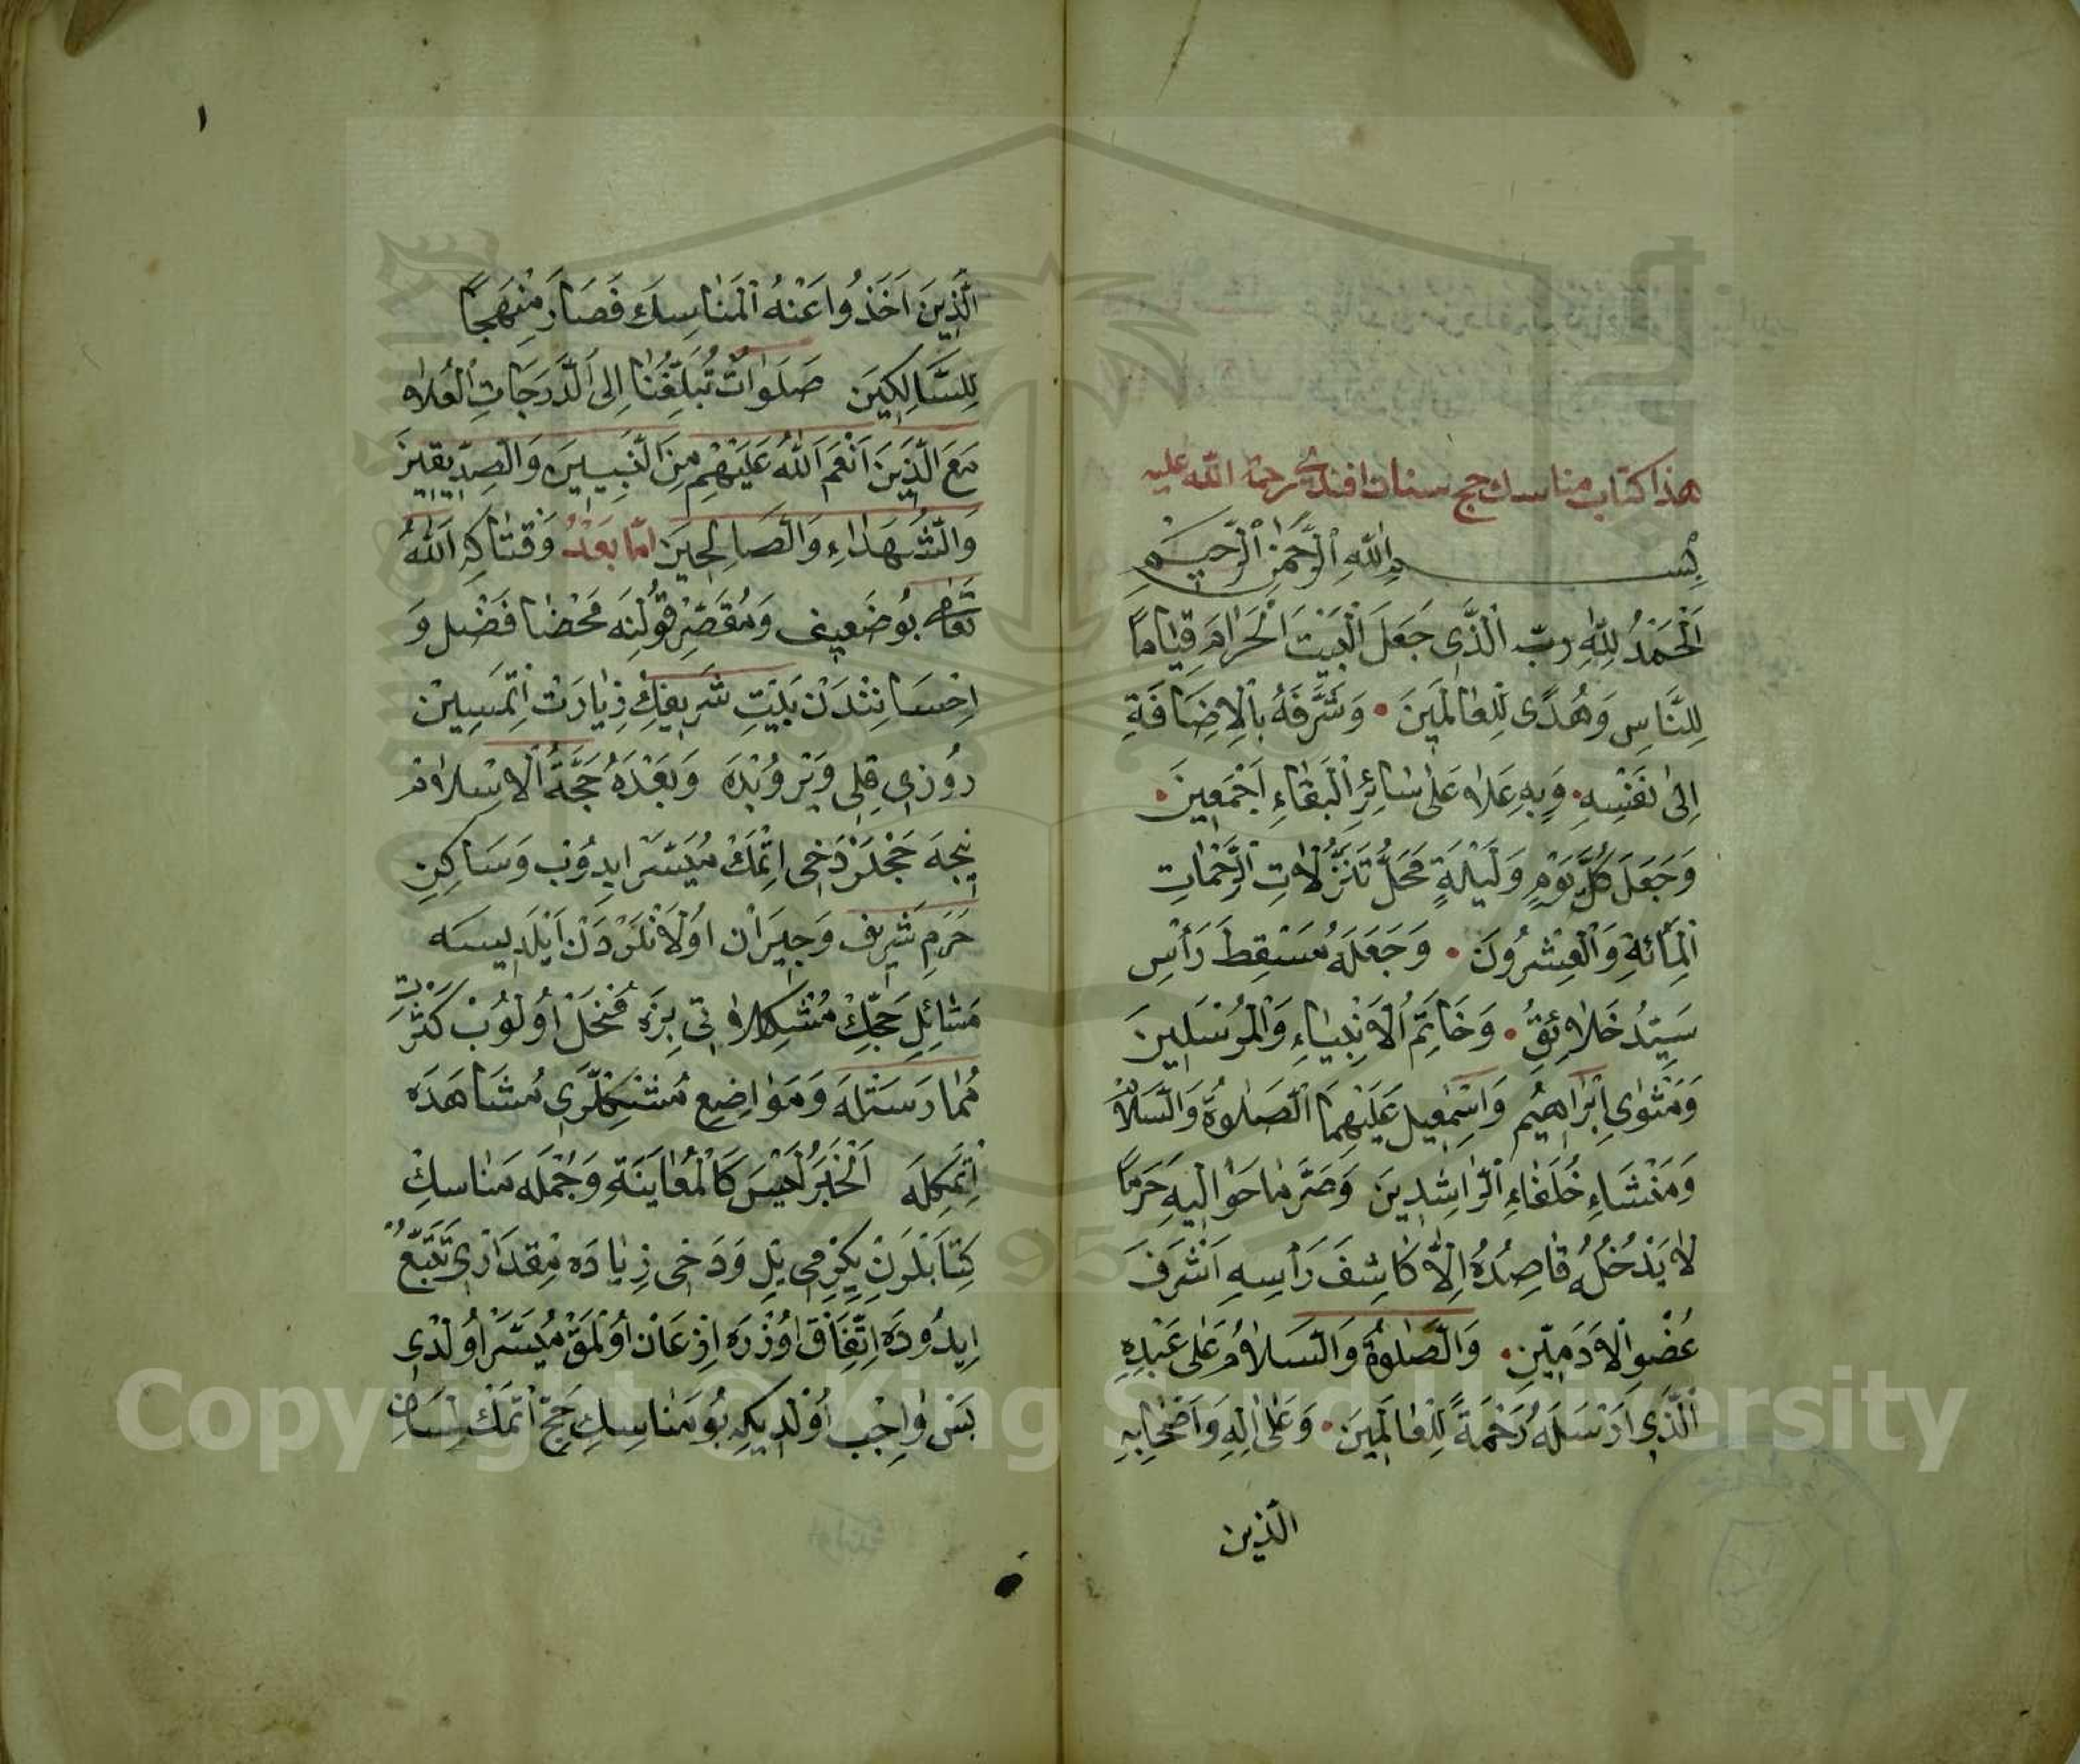 هذا كتاب مناسك حج سنان افندى رحمة الله عليه
بِسْمِ اللهِ الرَّحْمٰنِ الرَّحِيمِ
اَلْحَمْدُ لِلّٰهِ رَبِّ الَّذِى جَعَلَ الْبَيْتَ الْحَرَامَ قِيَامًا
لِلنَّاسِ وَهُدًى لِلْعَالَمِينَ • وَشَرَّفَهُ بِالْاِضَافَةِ
اِلٰى نَفْسِهِ • وَبِهِ عَلَاهُ عَلٰى سَائِرِ الْبَقَاءِ اَجْمَعِينَ •
وَجَعَلَ كُلَّ يَوْمٍ وَلَيْلَةٍ مَحَلَّ تَنَزُّلَاتِ الرَّحْمَاتِ
الْمِائَةِ وَالْعِشْرُونَ • وَجَعَلَهُ مَسْقِطَ رَأْسِ
سَيِّدُ خَلَائِقُ • وَخَاتِمُ الْاَنْبِيَاءِ وَالْمُرْسَلِينَ
وَمَثْوٰىِ اِبْرَاهِيم وَاِسْمٰعِيل عَلَيْهِمَا الصَّلٰوةُ وَالسَّلَامُ
وَمَنْشَاءِ خُلَفَاءِ الرَّاشِدِينَ وَصَيَّرَ مَا حَوَالَيْهِ حَرَمًا
لَا يَدْخُلُهُ قَاصِدُهُ اِلَّا كَاشِفَ رَأْسِهِ اَشْرَفَ
عُضْوِ الْاٰدَمِيّينِ • وَالصَّلٰوةُ وَالسَّلَامُ عَلٰى عَبْدِهِ
الَّذِى اَرْسَلَهُ رَحْمَةً لِلْعَالَمِينَ • وَعَلٰى اٰلِهِ وَاَصْحَابِهِ
الذين
١
الَّذِينَ اَخَذُوا عَنْهُ الْمَنَاسِكَ فَصَارَ مِنْهَجًا
لِلسَّالِكِينَ صَلَوَاتٌ تُبَلِّغُنَا اِلَى الدَّرَجَاتِ الْعُلَاهِ
مَعَ الَّذِينَ اَنْعَمَ اللهُ عَلَيْهِمْ مِنَ النَّبِيِينَ وَالصِّدِّيقِينَ
وَالشُّهَدَاءِ وَالصَّالِحِينَ اَمَّا بَعْدُ وَقْتَاكِهِ اللهُ
تَعَالٰى بُو ضَعِيف وَمُقَصِّرْ قُولِنَه مَحْضَا فَضْل وَ
اِحْسَانِنْدَنْ بَيْتِ شَرِيفِكْ زِيَارَتْ اِتْمَسِيْنْ
رُوزِى قِلِى وَيْرُوبْدَه وَبَعْدَهُ حَجَّةُ الْاِسْلَامْ
نِيجَه حَجْلَرْدَخِى اِتْمَكْ مُيَسَّرْ ايِدُوبْ وَسَاكِنِ
حَرَمِ شَرِيف وَجِيرَانْ اُولَانْلَرْدَنْ اَيْلَدِيسَه
مَسَائِلِ حَجِّكْ مُشْكِلَاتِى بِزَه مُنْحَلْ اُولُوبْ كَثْرَتِ
مُمَارَسَتْلَه وَمَوَاضِعِ مُشْكِلَّرِى مُشَاهَدَه
اِتْمَكِلَه اَلْخَبَرُ لَيْسَ كَالْمُعَايَنَةِ وَجُمْلَه مَنَاسِكِ
كِتَابْلَرِنْ يِكِرْمِى يِل وَدَخِى زِيَادَه مِقْدَارِى تَتَبُّعُ
اِيدُودَه اِتِّفَاقْ اُوزْرَه اِذْعَانْ اُولْمَقْ مُيَسَّرْ اُولْدِى
بَسْ وَاجِبْ اُولْدِيكِهِ بُو مَنَاسِكِ حَجّ اتْمَكْ لِسَانِ
Copyright © King Saud University